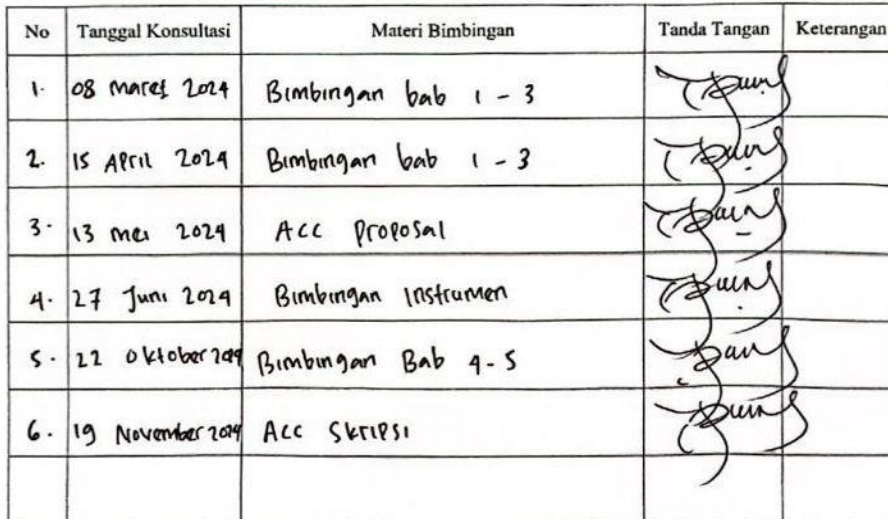 No Tanggal Konsultasi Materi Bimbingan Tanda Tangan Keterangan
1. 08 Maret 2024 Bimbingan bab 1 - 3
2. 15 April 2024 Bimbingan bab 1 - 3
3. 13 mei 2024 ACC Proposal
4. 27 Juni 2024 Bimbingan Instrumen
5. 22 Oktober 2024 Bimbingan Bab 4-5
6. 19 November 2024 Acc Skripsi